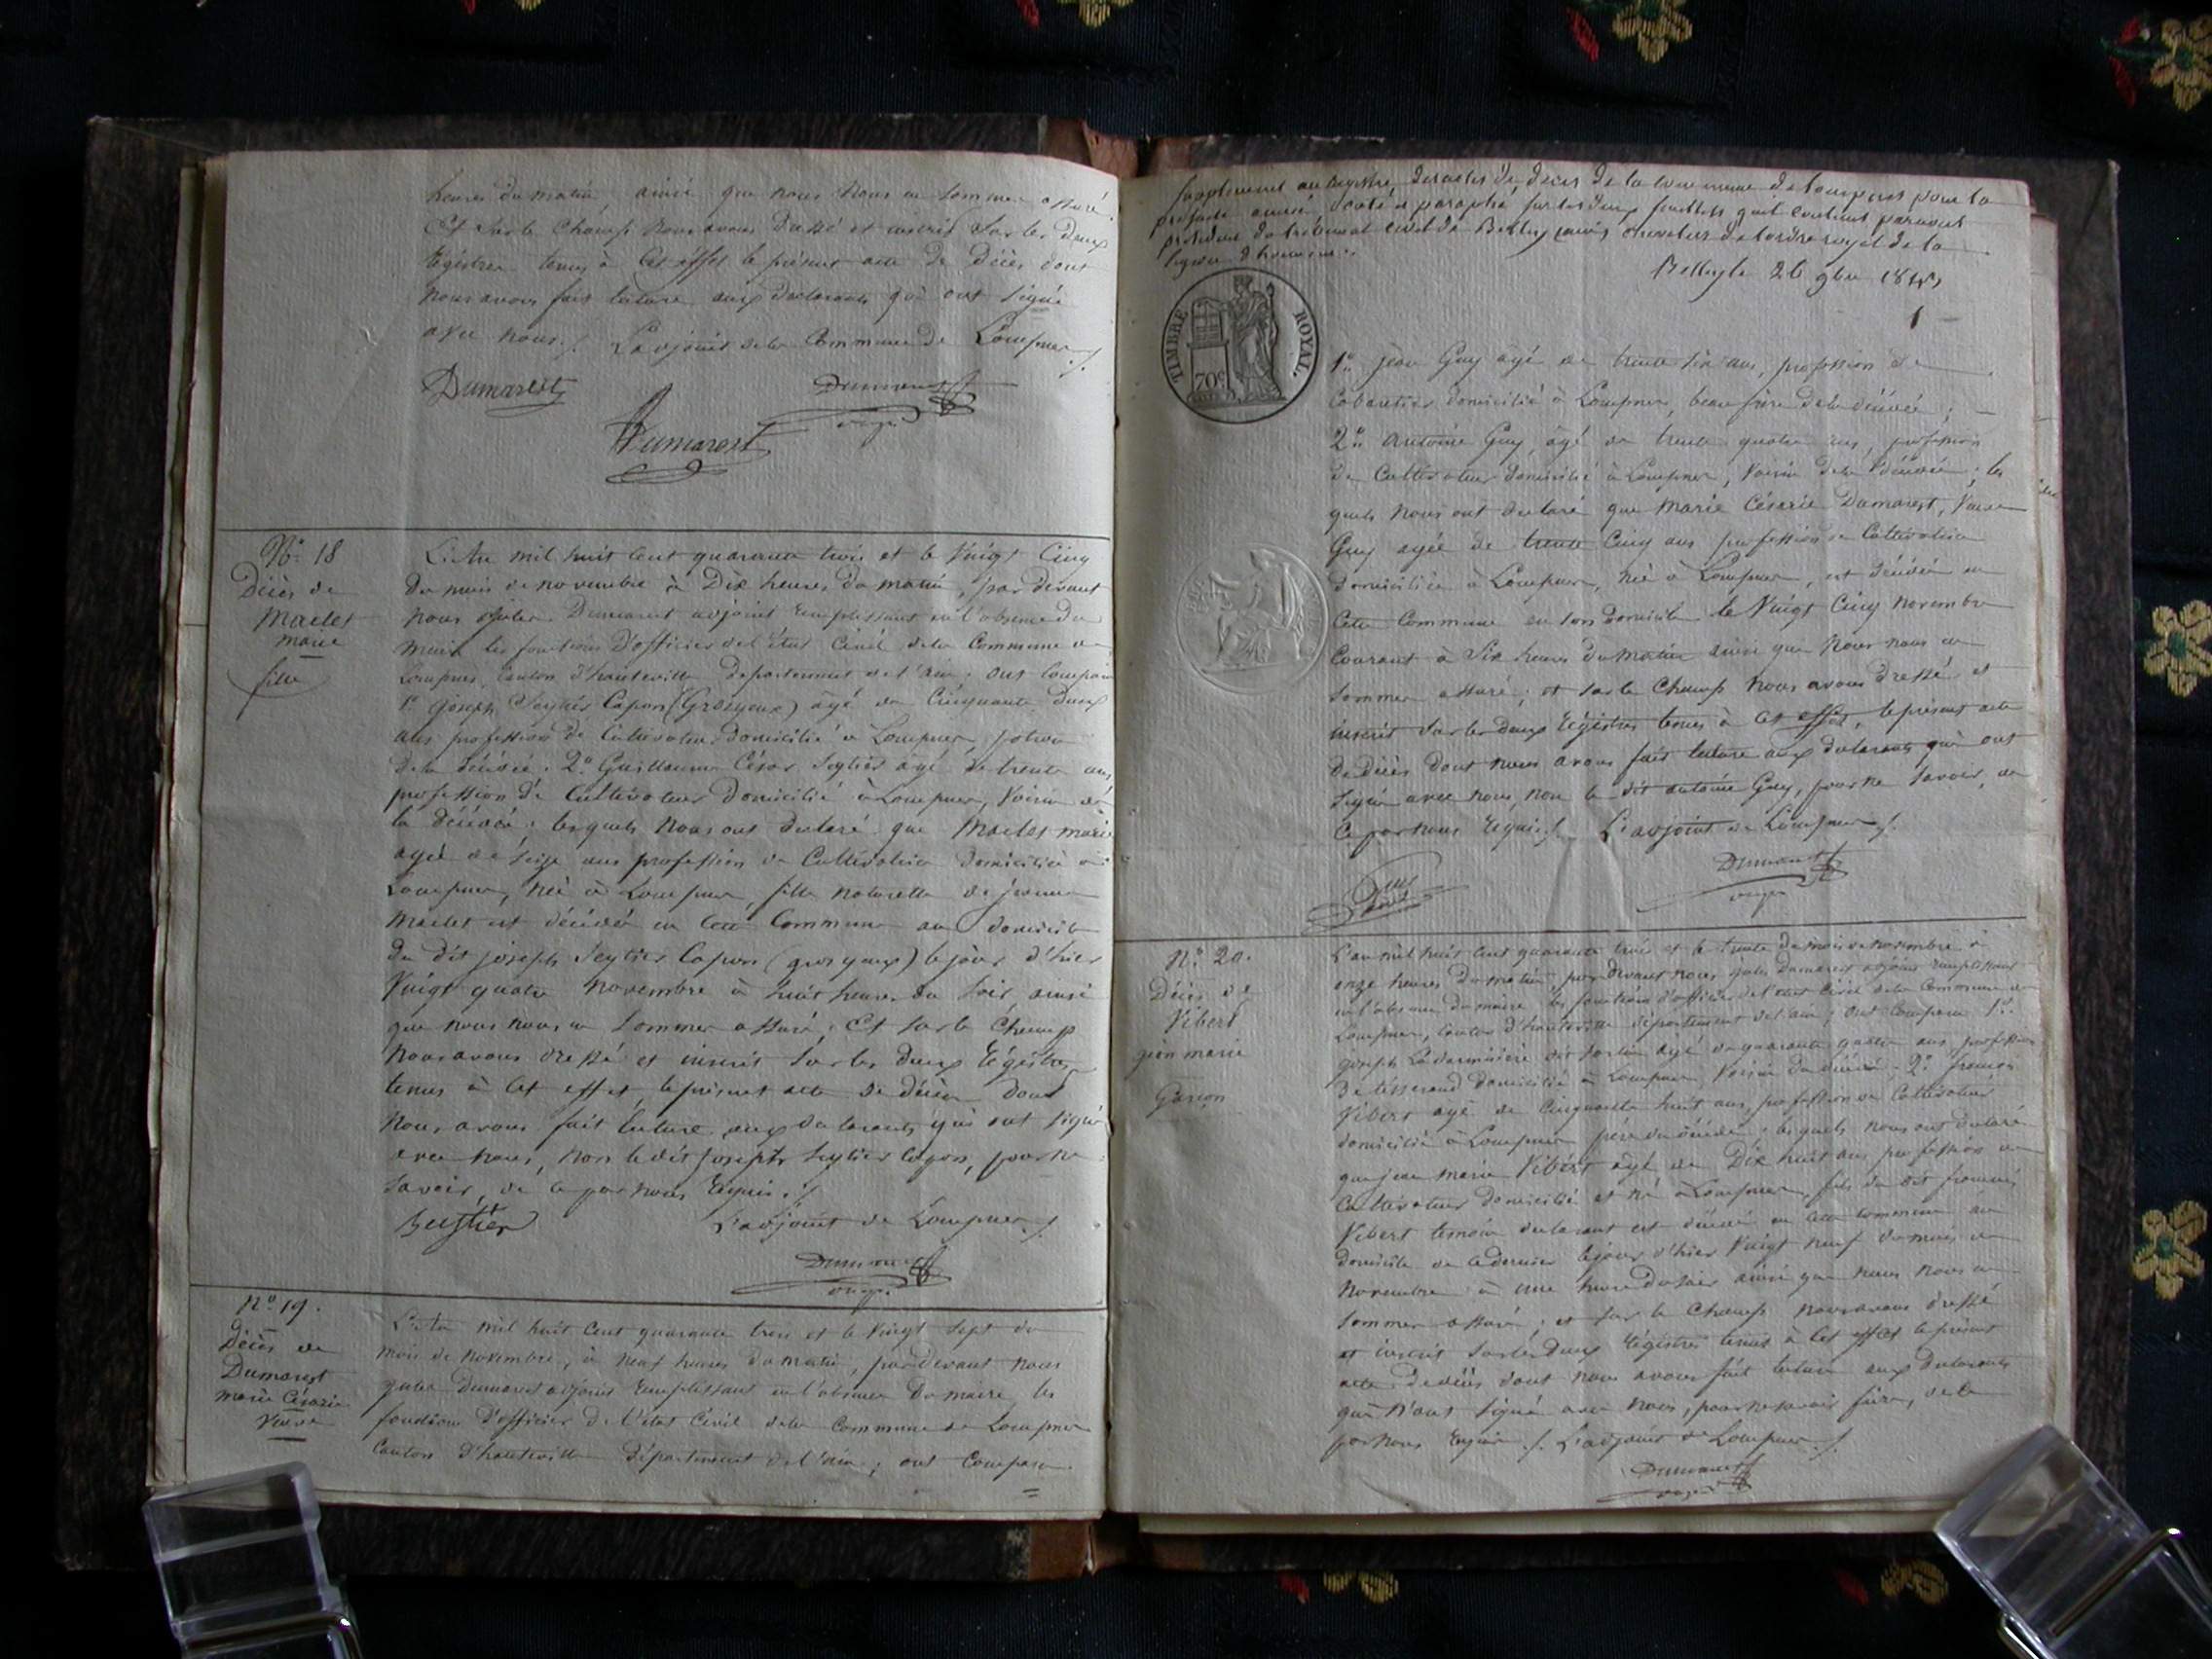 heures du matin, ainsi que nous nous en sommes assuré.
Et sur le champ nous avons dressé et inscrit sur les deux
Régistres tenus à cet effet le présent acte de décès dont
nous avons fait lecture aux declarants qui ont signé
avec nous ./. L'adjoint de la Commune de Lompnes ./.
Dumarest Dumarest
Dumarest
N.o 18
Décès de
Maclet
marie
fille
L'An mil huit cent quarante trois et le vingt Cinq
du mois de novembre à Dix heures du matin, par devant
nous jules Dumarest adjoint remplissant en l'absence du
maire les fonctions d'officier de l'état Civil de la Commune de
Lompnes, Canton d'hauteville departement de l'ain; ont comparu
1.o joseph Seytier Capon (Grosyeux) âgé de Cinquante deux
ans profession de Cultivateur domicilié à Lompnes,
de la décédée. 2.o Guillaume César Seytier agé de trente ans
profession de Cultivateur domicilié à Lompnes, Voisin de
la décédée; lesquels nous ont declaré que Maclet marie
agée de seize ans profession de Cultivatrice domiciliée à
Lompnes, née à Lompnes, fille naturelle de
Maclet est décédée en cette Commune au domicile
du dit joseph Seytier Capon (grosyeux) le jour d'hier
Vingt quatre novembre à huit heures du soir ainsi
que nous nous en sommes assuré; Et sur le champ
nous avons dressé et inscrit sur les deux Régistres
tenus à cet effet, le présent acte de décès dont
nous avons fait lecture aux declarants qui ont signé
avec nous, non le dit Joseph Seytier Capon, pour ne
savoir, de ce par nous requis ./.
L'adjoint de Lompnes ./.
Dumarest
N.o 19.
Décès de
Dumarest
marie Césarie
Veuve
L'An mil huit cent quarante trois et le vingt sept du
mois de novembre, à neuf heures du matin, pardevant nous
jules Dumarest adjoint remplissant en l'absence du maire, les
fonctions d'officier de l'état Civil de la Commune de Lompnes
Canton d'hauteville département de l'ain; ont Comparu
Supplément au registre des actes de décès de la commune de Lompnes pour la
présente année, coté et paraphé sur les deux feuillets qu'il contient par nous
président du tribunal civil de Belley, chevalier de l'ordre royal de la
légion d'honneur.
Belley le 26 9bre 1843
1
TIMBRE ROYAL.
70c
1.o jean Guy âgé de trente six ans, profession de
Cabaretier domicilié à Lompnes, beau frère de la décédée;
2.o antoine Guy, âgé de trente quatre ans, profession
de Cultivateur domicilié à Lompnes, voisin de la décédée; les
quels nous ont declaré que Marie Césarie Dumarest, Veuve
Guy agée de trente Cinq ans profession de Cultivatrice
domiciliée à Lompnes, née à Lompnes, est décédée en
cette Commune en son domicile le Vingt Cinq novembre
Courant à Six heures du matin ainsi que nous nous en
sommes assuré; et sur le Champ nous avons dressé et
inscrit sur les deux Régistres tenus à cet effet, le présent acte
de décès dont nous avons fait lecture aux declarants qui ont
signé avec nous, non le dit antoine Guy, pour ne savoir, de
ce par nous requis ./. L'adjoint de Lompnes ./.
Guy Dumarest
N.o 20.
Décès de
Vibert
jean marie
Garçon
L'an mil huit cent quarante trois et le trente du mois de novembre à
onze heures du matin, par devant nous jules Dumarest adjoint remplissant
en l'absence du maire les fonctions d'officier de l'état Civil de la Commune de
Lompnes, Canton d'hauteville département de l'ain; ont Comparu 1.o
joseph dit agé de quarante quatre ans profession
de tisserand domicilié à Lompnes, Voisin du décédé. 2.o françois
Vibert agé de Cinquante huit ans, profession de Cultivateur
domicilié à Lompnes père du décédé; lesquels nous ont declaré
que jean marie Vibert agé de Dix huit ans profession de
Cultivateur domicilié et né à Lompnes, fils du dit françois
Vibert temoin declarant est décédé en cette Commune au
domicile de ce dernier le jour d'hier Vingt neuf du mois de
Novembre à une heure du soir ainsi que nous nous en
sommes assuré; et sur le Champ nous avons dressé
et inscrit sur les deux Régistres tenus à cet effet le présent
acte de décès dont nous avons fait lecture aux Declarants
qui n'ont signé avec nous, pour ne savoir faire, de ce
par nous requis ./. L'adjoint de Lompnes ./.
Dumarest